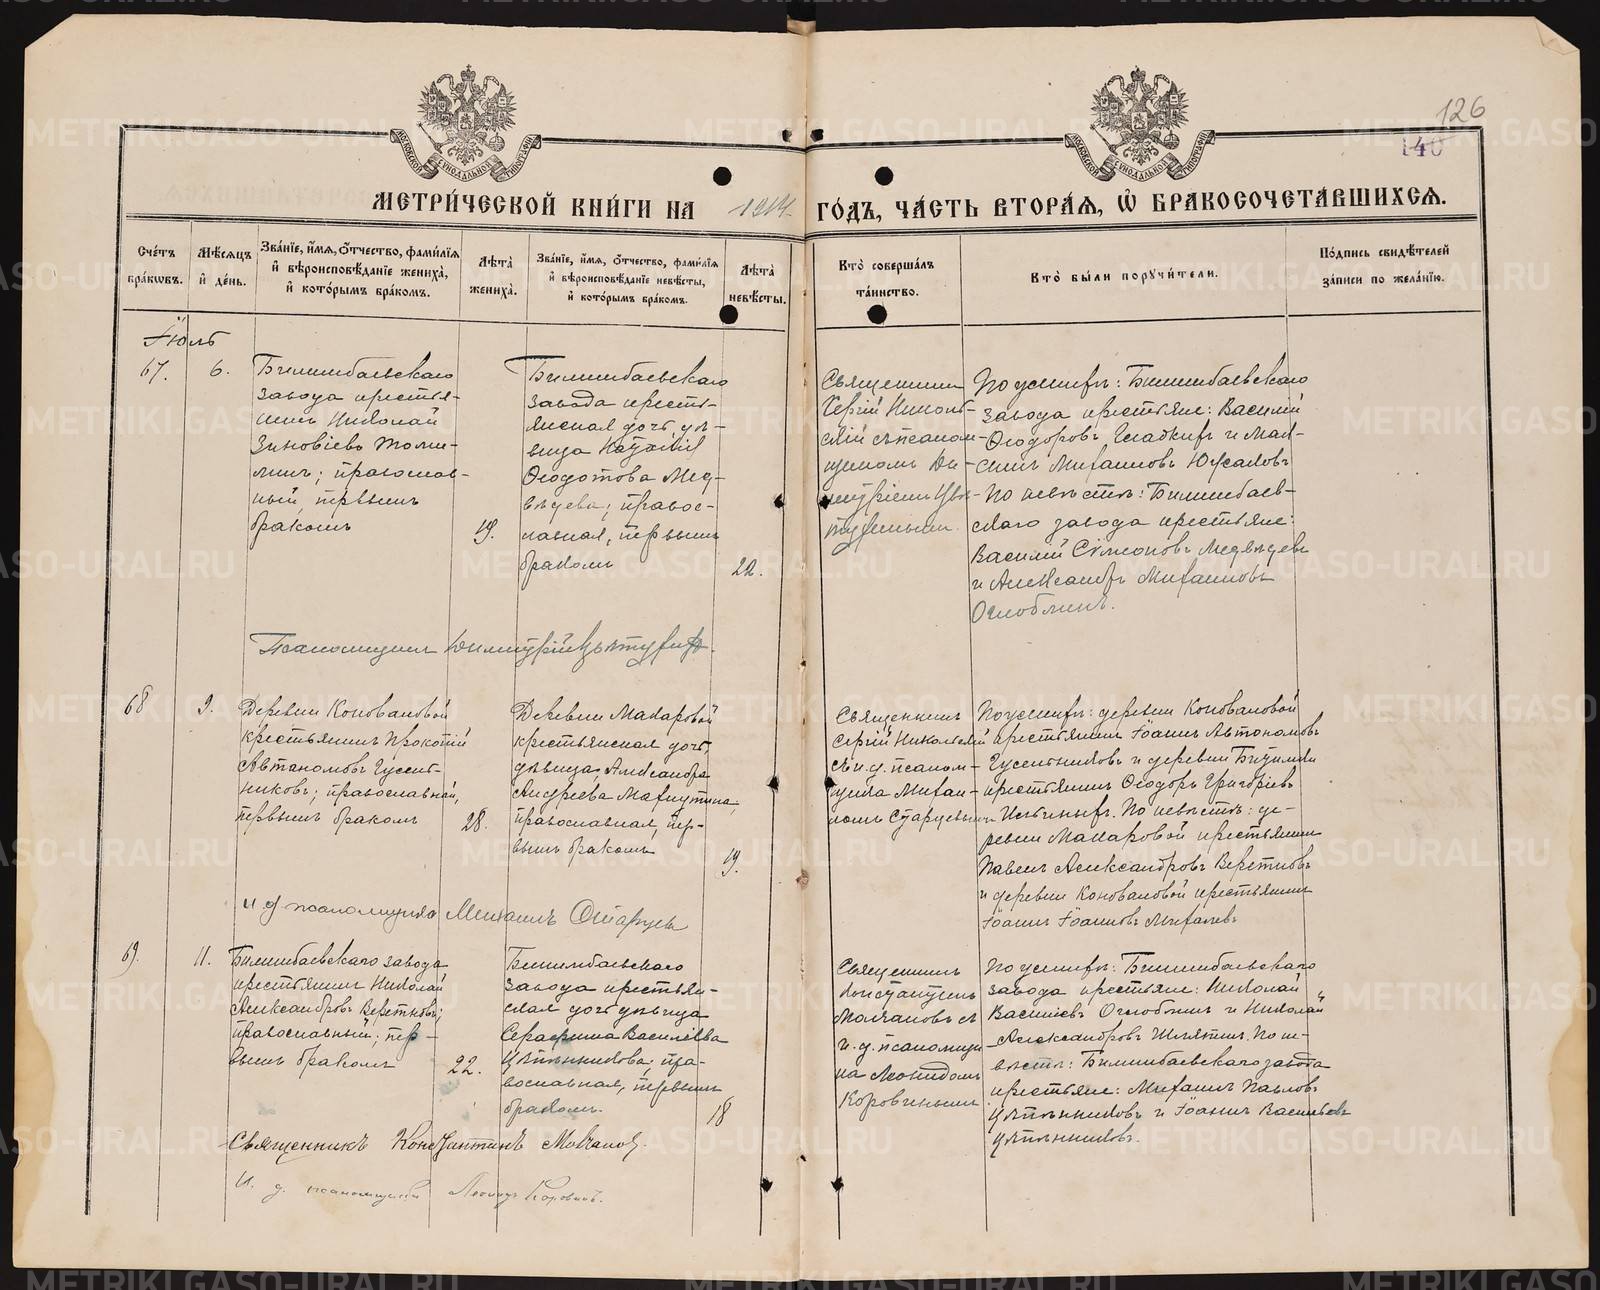 126
140
МЕТРИ́ЧЕСКОЙ КНИ́ГИ НА 1914 ГО́ДЪ, ЧА́СТЬ ВТОРА́Я, Ѡ БРАКОСОЧЕТА́ВШИХСЯ.
Сче́тъ бра́ковъ.
Мѣ́сяцъ и́ де́нь.
Зва́нїе, и́мя, о́тчество, фами́лїя и́ вѣроисповѣ́данїе жениха̀, и́ кото́рымъ бра́комъ.
Лѣта̀ жениха̀.
Зва́нїе, и́мя, о́тчество, фами́лїя и́ вѣроисповѣ́данїе невѣ́сты, и́ кото́рымъ бра́комъ.
Лѣта̀ невѣ́сты.
Кто̀ соверша́лъ та́инство.
Кто̀ бы́ли поручи́тели.
По́дпись свидѣ́телей за́писи по жела́нїю.
Іюль
67.
6.
Билимбаевскаго
завода крестья-
нинъ Николай
Зиновіевъ
православ-
ный, первымъ
бракомъ
19.
Билимбаевскаго
завода кресть-
янская дочь, дѣ-
вица
Ѳеодотова Мед-
вѣдева; правос-
лавная, первымъ
бракомъ
22.
Священникъ
Сергій Николь-
скій съ псалом-
щикомъ Ди-
митріемъ
По женихѣ: Билимбаевскаго
завода крестьяне: Василій
Ѳеодоровъ Гладкихъ и Мак-
симъ Михаиловъ
По невѣстѣ: Билимбаев-
скаго завода крестьяне:
Василій Симеоновъ Медвѣдевъ
и Александръ Михаиловъ
Оглоблинъ.
Псаломщикъ Димитрій
68
9.
Деревни Коноваловой
крестьянинъ Прокопій
Автономовъ Гусель-
никовъ; православный,
первымъ бракомъ
28.
Деревни Макаровой
крестьянская дочь,
дѣвица Александра
Андреева
православная, пер-
вымъ бракомъ
19.
Священникъ
Сергій Никольскій
съ и. д. псалом-
щика Михаи-
ломъ Старцевымъ
По женихѣ: деревни Коноваловой
крестьянинъ Іоаннъ Автономовъ
Гусельниковъ и деревни
крестьянинъ Ѳеодоръ Григоріевъ
По невѣстѣ: де-
ревни Макаровой крестьянинъ
Павелъ Александровъ Веретновъ
и деревни Коноваловой крестьянинъ
Іоаннъ Іоанновъ Михалевъ
и д псаломщика Михаилъ Старцевъ
69.
11.
Билимбаевскаго завода
крестьянинъ Николай
Александровъ Веретновъ;
православный; пер-
вымъ бракомъ
22.
Билимбаевскаго
завода крестьян-
ская дочь дѣвица
Серафима Васильева
Цѣпенникова; пра-
вославная, первымъ
бракомъ.
18
Священникъ
Константинъ
Молчановъ съ
и. д. псаломщи-
ка Леонидомъ
Коровинымъ
По женихѣ: Билимбаевскаго
завода крестьяне: Николай
Васильевъ Оглоблинъ и Николай
Александровъ Шиляевъ. По не-
вѣстѣ: Билимбаевскаго завода
крестьяне: Михаилъ Павловъ
Цѣпенниковъ и Іоаннъ Васильевъ
Цѣпенниковъ.
Священникъ Константинъ Молчановъ.
И. д. псаломщика Леонидъ Коровинъ.